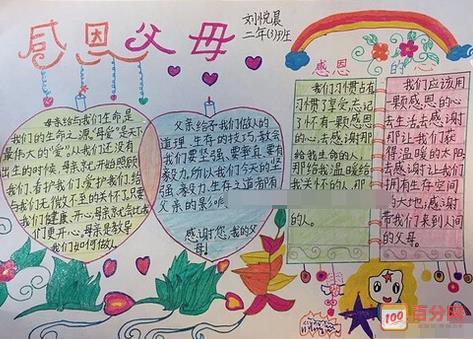 感恩父母
刘悦晨
二年(3)班
母亲给与我们生命是
我们的生命之源,"母爱"是天下
最伟大的"爱"从我们还没有
出生的时候,母亲就开始照顾
我们,看护我们,爱护我们,给
与我们无微不至的关怀了,只要
我们健康、开心,母亲就会比我
们更开心,母亲是教导
我们如何做人,
父亲给予我们做人的
道理,生存的技巧,教会
我们要坚强、要率真、要有
毅力,所以我们今天的坚
强、毅力、生存之道者有
父亲的影
感谢您,我的父
母!
感恩的心
我们习惯占有
习惯了享受,忘记
了怀有一颗感恩的
心去感谢那
给我生命的人,
给我温暖给
我关怀的人,那
的人。
我们应该用
一颗感恩的心
去生活去感谢
那让我们获
得温暖的太阳
去感谢让我们
拥有生存空间
的大地;感谢
带我们来到人间
的父母。
100
百分网